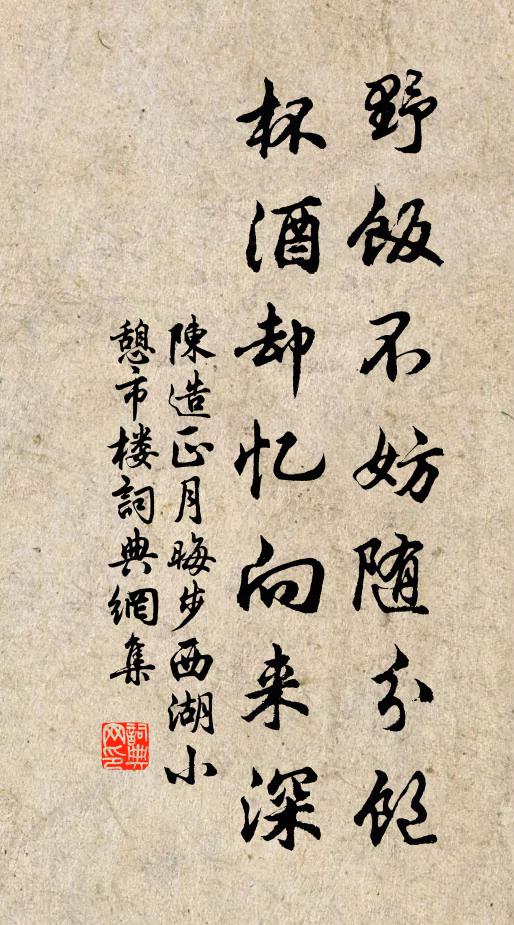 野飯不妨随分飽
杯酒却忆向来深
陳造正月晦步西湖小
憩市楼詞典網集
詞典网印